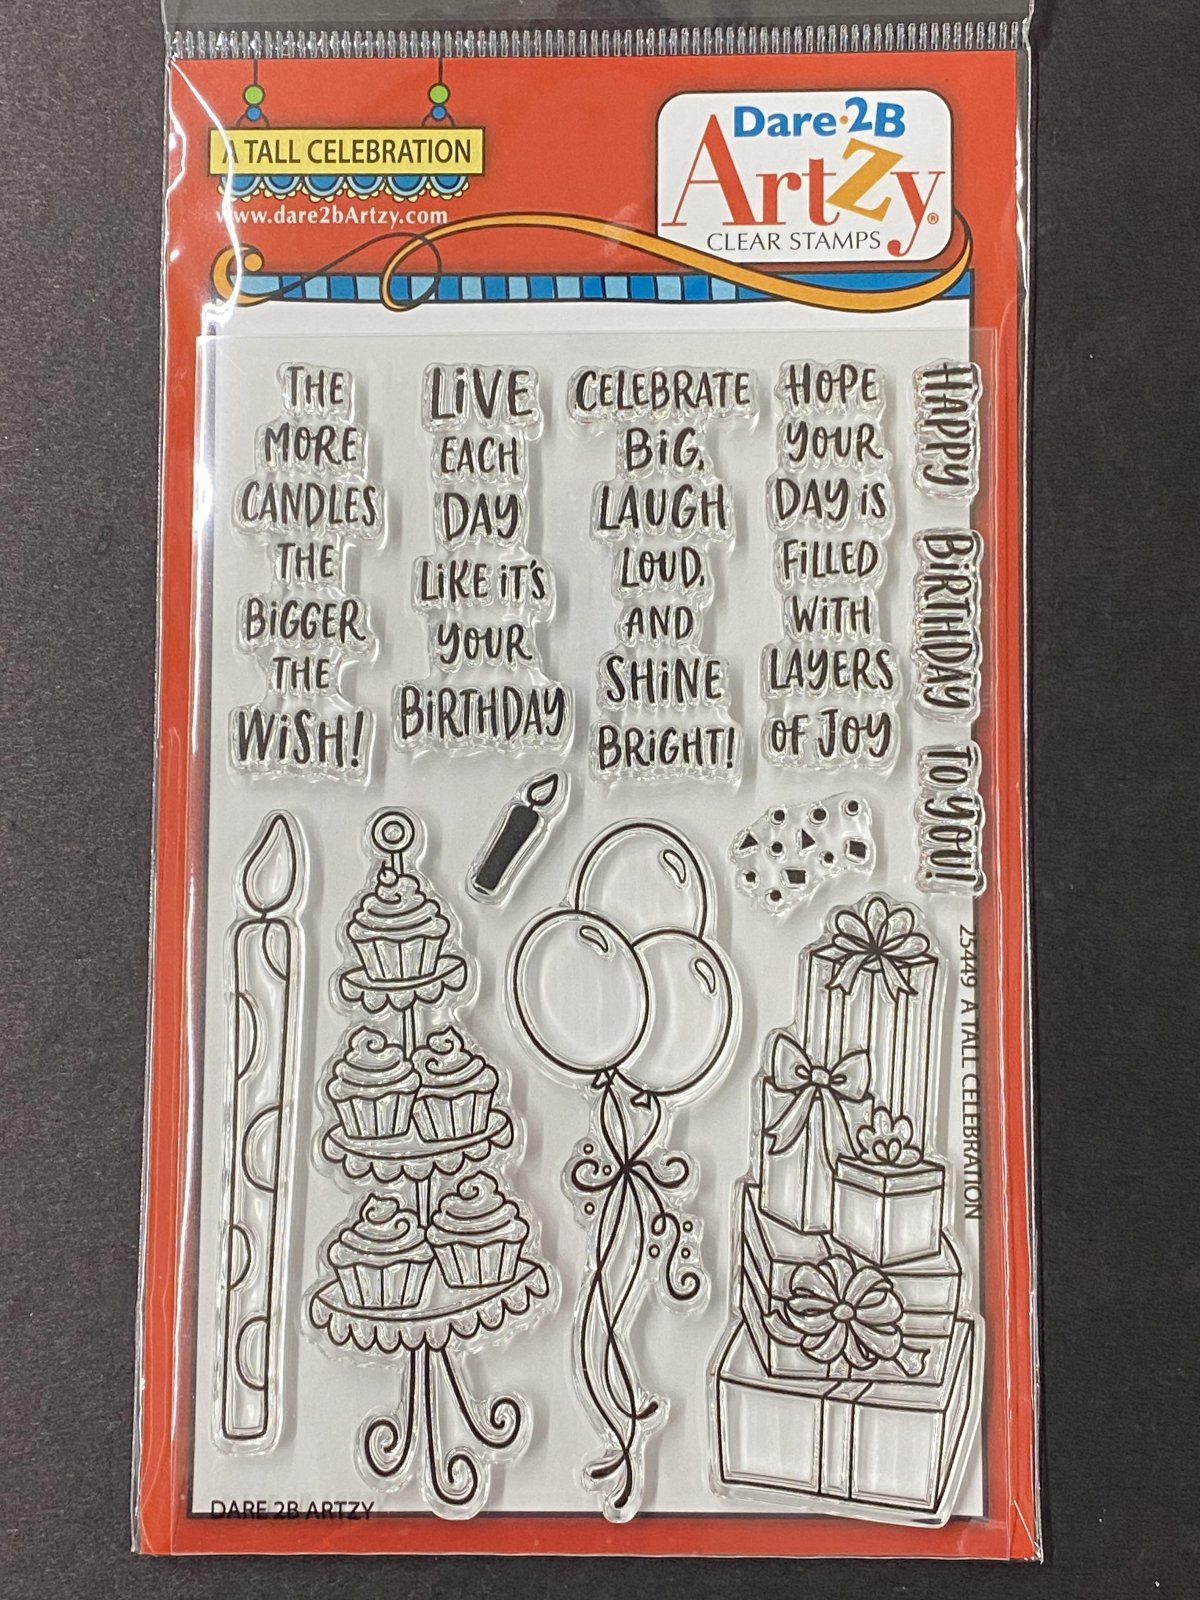 A TALL CELEBRATION
www.dare2bArtzy.com
Dare·2B
ArtZy®
CLEAR STAMPS
THE
MORE
CANDLES
THE
BiGGER
THE
WiSH!
LiVE
EACH
DAY
LiKE iT'S
YOUR
BiRTHDAY
CELEBRATE
BiG,
LAUGH
LOUD,
AND
SHiNE
BRiGHT!
HOPE
YOUR
DAY iS
FiLLED
WiTH
LAYERS
OF JOY
HAPPY BiRTHDAY TO YOU!
25449 A TALL CELEBRATION
DARE 2B ARTZY